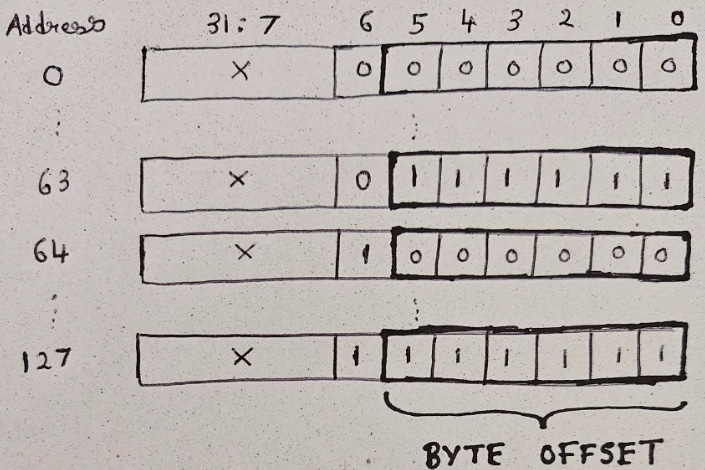 Address 31:7 6 5 4 3 2 1 0
0 × 0 0 0 0 0 0 0
⋮ ⋮
63 × 0 1 1 1 1 1 1
64 × 1 0 0 0 0 0 0
⋮ ⋮
127 × 1 1 1 1 1 1 1
BYTE OFFSET